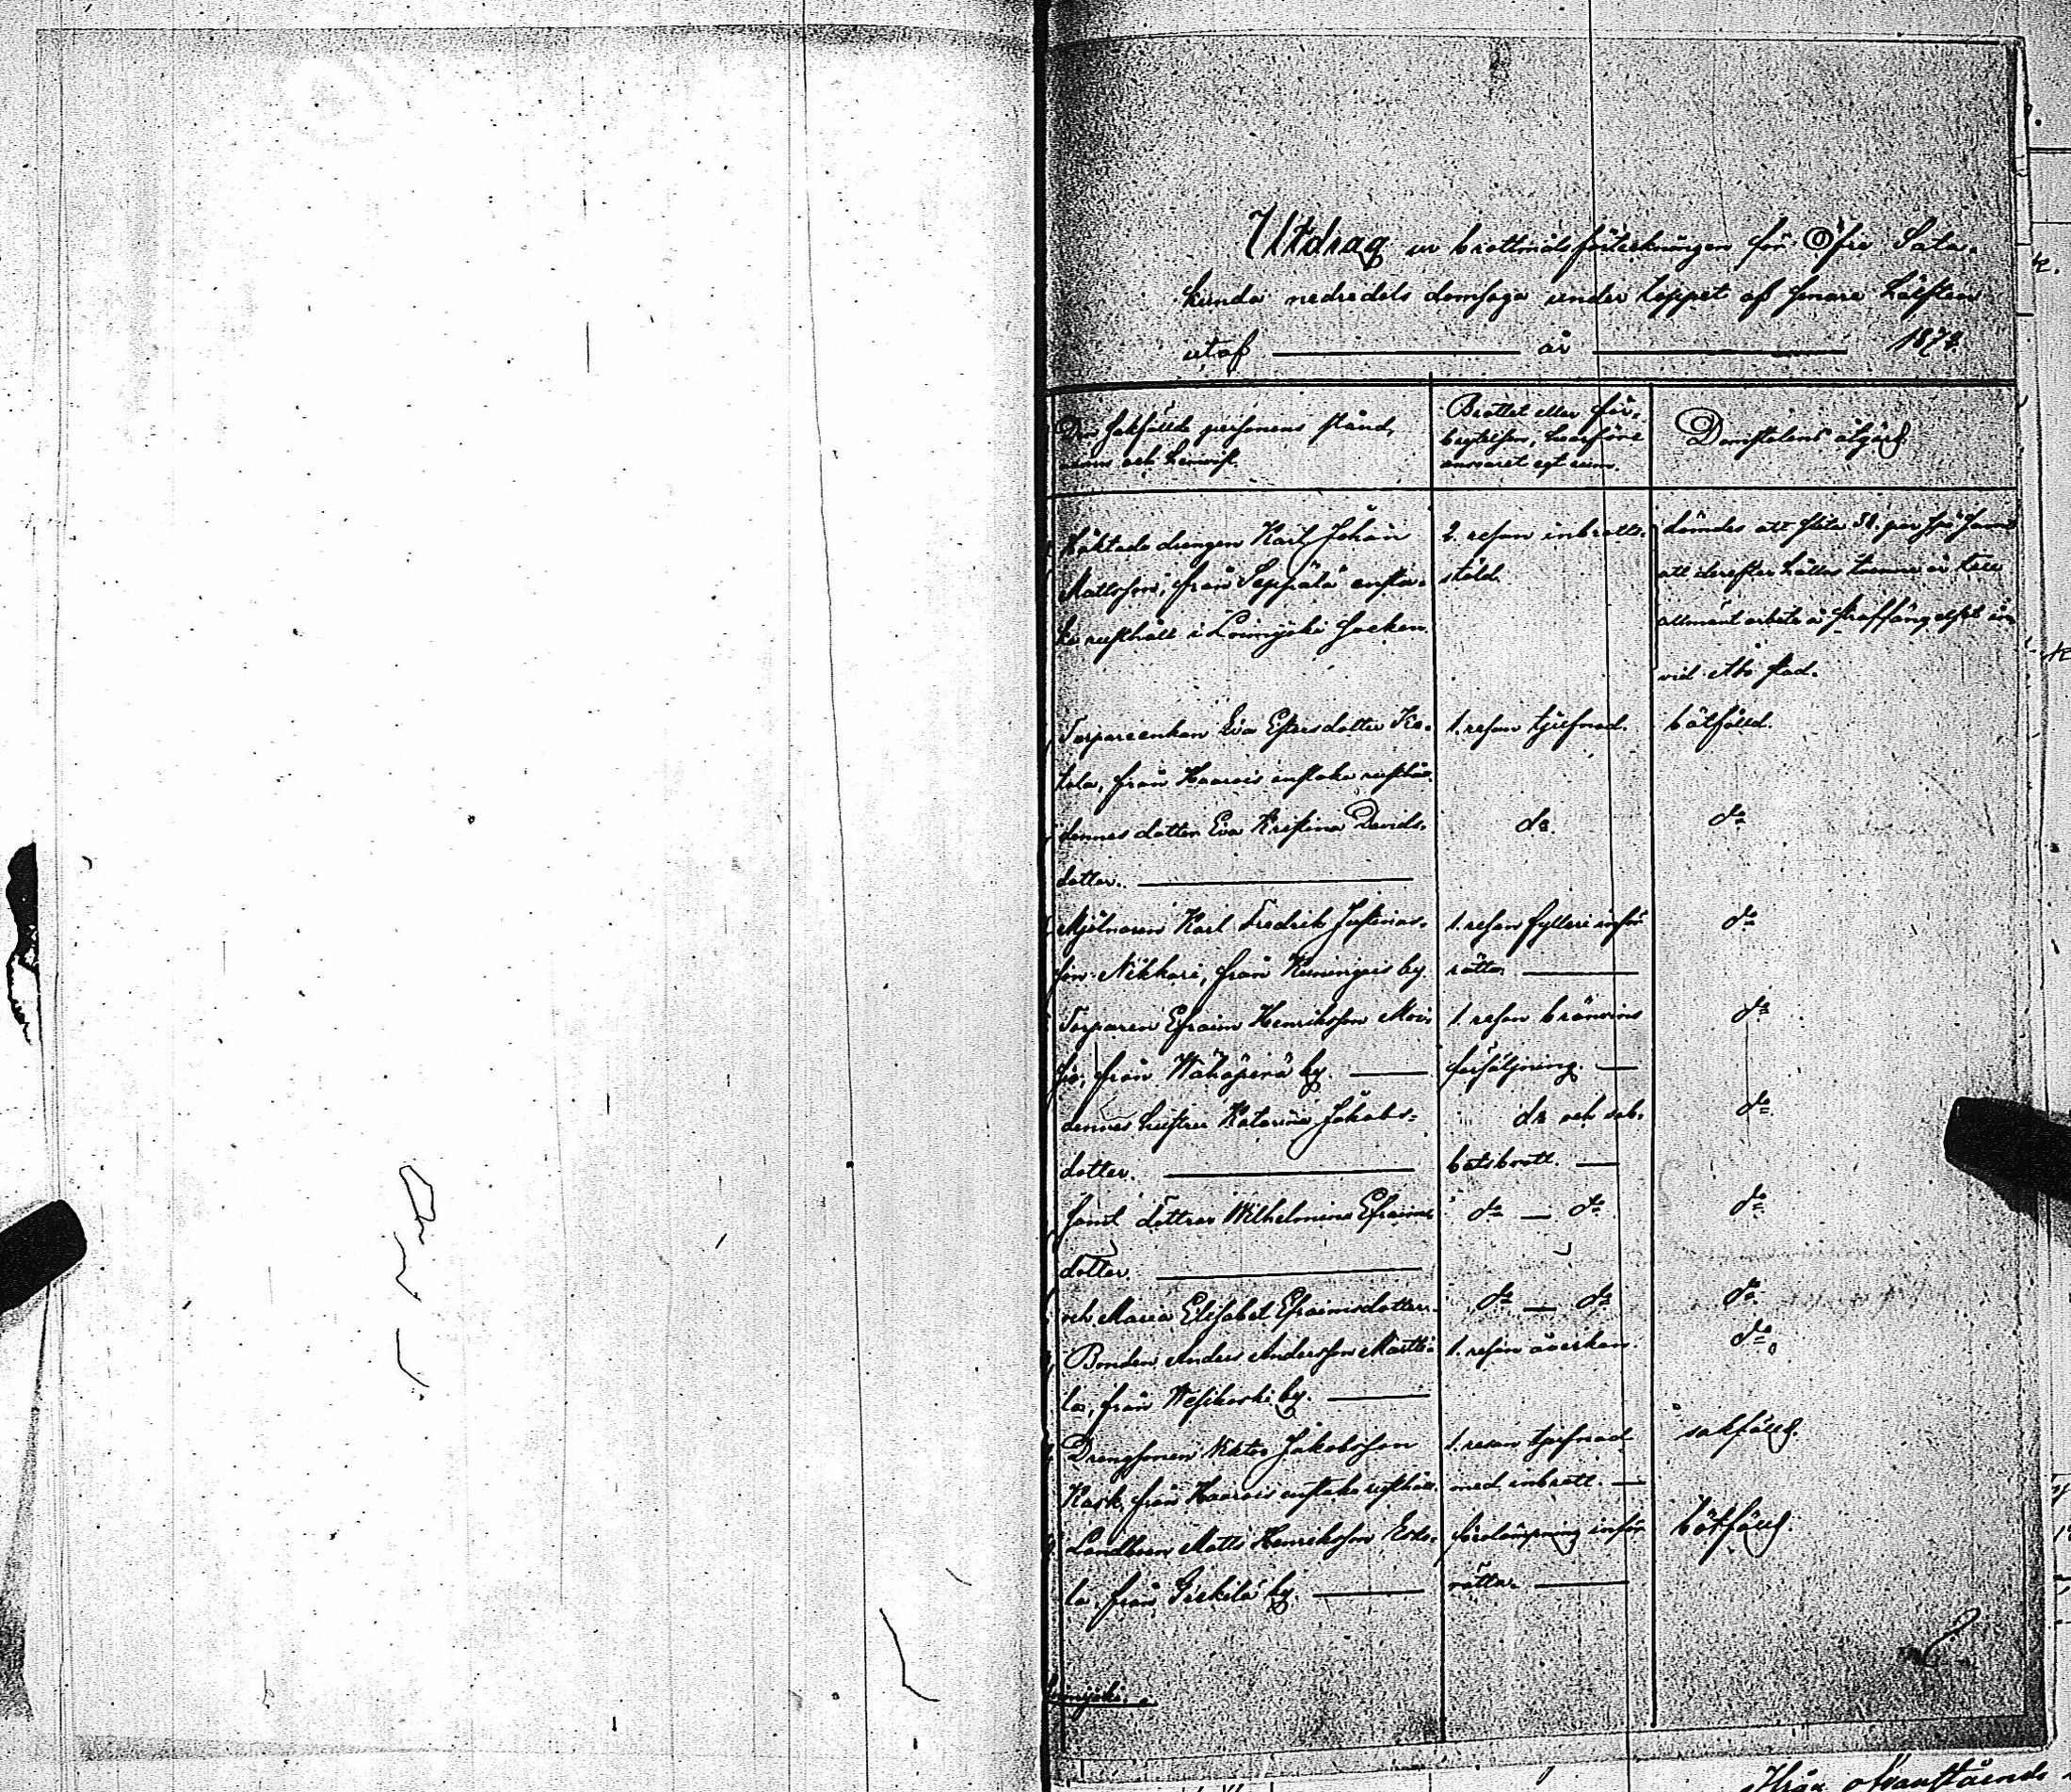 Utdrag ur brottmålsförteckningen för Öfre Sata-
kunda nedredels domsaga under loppet af senare hälften
utaf ——— år ——— 1874.
Den sakfällde personens stånd,
namn och hemvist.
Brottet eller för-
brytelsen, hvarföre
ansvaret egt rum.
Domstolens åtgärd.
Häktade drengen Karl Johan
Mattsson, från Seppälä ensta-
ka rusthåll i Loimijoki socken.
2. resan inbrotts-
stöld.
dömdes att slita 38. par spö samt
att derefter hållas tvenne år till
allmänt arbete å straffängelset
vid Åbo stad.
Torpareenkan Eva Estersdotter
tola, från Haarois enstaka rusthåll.
1. resan tjufnad.
bötfälld.
dennes dotter Eva Kristina Davids-
dotter. ———
do.
do
Mjölnaren Karl Fredrik Justinas-
son Nikkari, från Kuningois by.
1. resan fylleri inför
rätta. ———
do
Torparen Efraim Henriksson Moi-
sio, från Wähäperä by. ———
1. resan bränvins
försäljning. —
do
dennes hustru Katarina Jakobs-
dotter. ———
do och sab-
batsbrott. —
do
samt dottrar Wilhelmina Efraims-
dotter. ———
do — do
do
och Maria Elisabet Efraimsdotter.
do — do
do
Bonden Anders Andersson Martti-
la, från Wesikoski by. ———
1. resan åverkan.
do
Drengsonen Viktor Jakobsson
Kark, från Haarois enstaka rusthåll.
1. resan tjufnad
med inbrott. —
sakfälld.
Landboen Matts Henriksson
la, från Pirkilä by. ———
förolämpning inför
rätta. ———
bötfälld.
ofvanstående